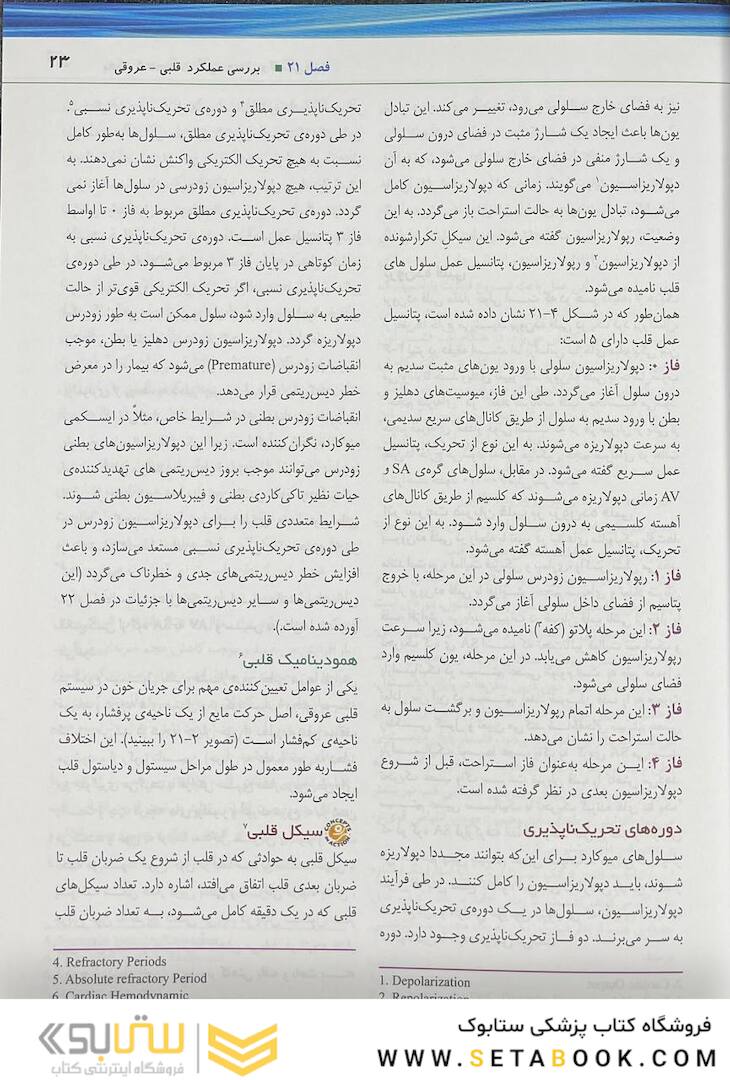 فصل ۲۱ ■ بررسی عملکرد قلبی - عروقی
۲۳
نیز به فضای خارج سلولی می‌رود، تغییر می‌کند. این تبادل
یون‌ها باعث ایجاد یک شارژ مثبت در فضای درون سلولی
و یک شارژ منفی در فضای خارج سلولی می‌شود، که به آن
دپولاریزاسیون۱ می‌گویند. زمانی که دپولاریزاسیون کامل
می‌شود، تبادل یون‌ها به حالت استراحت باز می‌گردد. به این
وضعیت، رپولاریزاسیون گفته می‌شود. این سیکل تکرارشونده
از دپولاریزاسیون۲ و رپولاریزاسیون، پتانسیل عمل سلول های
قلب نامیده می‌شود.
همان‌طور که در شکل ۴-۲۱ نشان داده شده است، پتانسیل
عمل قلب دارای ۵ است:
فاز ۰: دپولاریزاسیون سلولی با ورود یون‌های مثبت سدیم به
درون سلول آغاز می‌گردد. طی این فاز، میوسیت‌های دهلیز و
بطن با ورود سدیم به سلول از طریق کانال‌های سریع سدیمی،
به سرعت دپولاریزه می‌شوند. به این نوع از تحریک، پتانسیل
عمل سریع گفته می‌شود. در مقابل، سلول‌های گره‌ی SA و
AV زمانی دپولاریزه می‌شوند که کلسیم از طریق کانال‌های
آهسته کلسیمی به درون سلول وارد شود. به این نوع از
تحریک، پتانسیل عمل آهسته گفته می‌شود.
فاز ۱: رپولاریزاسیون زودرس سلولی در این مرحله، با خروج
پتاسیم از فضای داخل سلولی آغاز می‌گردد.
فاز ۲: این مرحله پلاتو (کفه۳) نامیده می‌شود، زیرا سرعت
رپولاریزاسیون کاهش می‌یابد. در این مرحله، یون کلسیم وارد
فضای سلولی می‌شود.
فاز ۳: این مرحله اتمام رپولاریزاسیون و برگشت سلول به
حالت استراحت را نشان می‌دهد.
فاز ۴: این مرحله به‌عنوان فاز استراحت، قبل از شروع
دپولاریزاسیون بعدی در نظر گرفته شده است.
دوره‌های تحریک‌ناپذیری
سلول‌های میوکارد برای این‌که بتوانند مجددا دپولاریزه
شوند، باید دپولاریزاسیون را کامل کنند. در طی فرآیند
دپولاریزاسیون، سلول‌ها در یک دوره‌ی تحریک‌ناپذیری
به سر می‌برند. دو فاز تحریک‌ناپذیری وجود دارد. دوره
1. Depolarization
2. Repolarization
تحریک‌ناپذیری مطلق۴ و دوره‌ی تحریک‌ناپذیری نسبی۵.
در طی دوره‌ی تحریک‌ناپذیری مطلق، سلول‌ها به‌طور کامل
نسبت به هیچ تحریک الکتریکی واکنش نشان نمی‌دهند. به
این ترتیب، هیچ دپولاریزاسیون زودرسی در سلول‌ها آغاز نمی
گردد. دوره‌ی تحریک‌ناپذیری مطلق مربوط به فاز ۰ تا اواسط
فاز ۳ پتانسیل عمل است. دوره‌ی تحریک‌ناپذیری نسبی به
زمان کوتاهی در پایان فاز ۳ مربوط می‌شود. در طی دوره‌ی
تحریک‌ناپذیری نسبی، اگر تحریک الکتریکی قوی‌تر از حالت
طبیعی به سلول وارد شود، سلول ممکن است به طور زودرس
دپولاریزه گردد. دپولاریزاسیون زودرس دهلیز یا بطن، موجب
انقباضات زودرس (Premature) می‌شود که بیمار را در معرض
خطر دیس‌ریتمی قرار می‌دهد.
انقباضات زودرس بطنی در شرایط خاص، مثلاً در ایسکمی
میوکارد، نگران‌کننده است. زیرا این دپولاریزاسیون‌های بطنی
زودرس می‌توانند موجب بروز دیس‌ریتمی های تهدیدکننده‌ی
حیات نظیر تاکی‌کاردی بطنی و فیبریلاسیون بطنی شوند.
شرایط متعددی قلب را برای دپولاریزاسیون زودرس در
طی دوره‌ی تحریک‌ناپذیری نسبی مستعد می‌سازد، و باعث
افزایش خطر دیس‌ریتمی‌های جدی و خطرناک می‌گردد (این
دیس‌ریتمی‌ها و سایر دیس‌ریتمی‌ها با جزئیات در فصل ۲۲
آورده شده است.).
همودینامیک قلبی۶
یکی از عوامل تعیین‌کننده‌ی مهم برای جریان خون در سیستم
قلبی عروقی، اصل حرکت مایع از یک ناحیه‌ی پرفشار، به یک
ناحیه‌ی کم‌فشار است (تصویر ۲-۲۱ را ببینید). این اختلاف
فشاربه طور معمول در طول مراحل سیستول و دیاستول قلب
ایجاد می‌شود.
CONCEPTS IN ACTION سیکل قلبی۷
سیکل قلبی به حوادثی که در قلب از شروع یک ضربان قلب تا
ضربان بعدی قلب اتفاق می‌افتد، اشاره دارد. تعداد سیکل‌های
قلبی که در یک دقیقه کامل می‌شود، به تعداد ضربان قلب
4. Refractory Periods
5. Absolute refractory Period
6. Cardiac Hemodynamic
فروشگاه کتاب پزشکی ستابوک
WWW.SETABOOK.COM
ستابوک
فروشگاه اینترنتی کتاب